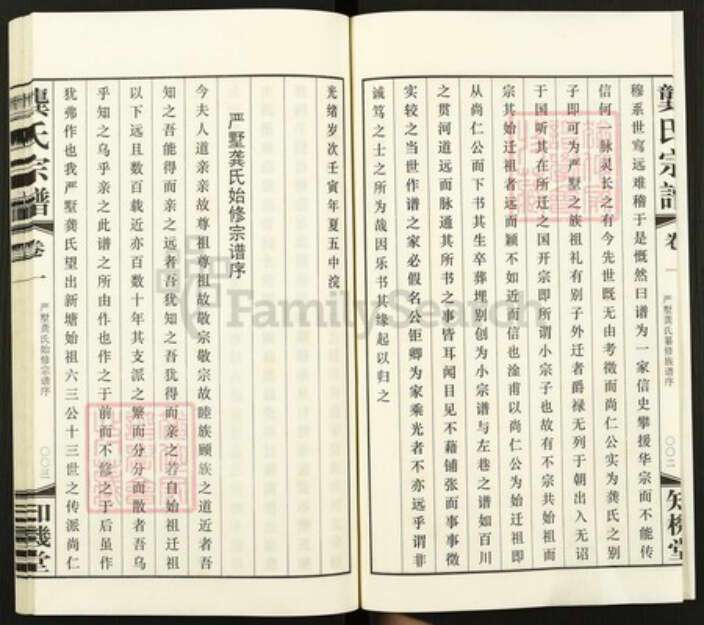 龚氏宗谱
卷一
严墅龚氏纂修族谱序
〇〇二
知稼堂
穆系世寫远难稽于是慨然曰谱为一家信史攀援华宗而不能传
信何一脉灵长之有今先世既无由考徵而尚仁公实为龚氏之别
子即可为严墅之族祖礼有别子外迁者爵禄无列于朝出入无诏
于国听其在所迁之国开宗即所谓小宗子也故有不宗共始祖而
宗其始迁祖者远而颖不如近而信也淦甫以尚仁公为始迁祖即
从尚仁公而下书其生卒葬埋别创为小宗谱与左巷之谱如百川
之贯河道远而脉通其所书之事皆耳闻目见不藉铺张而事事徵
实较之当世作谱之家必假名公钜卿为家乘光者不亦远乎谓非
诚笃之士之所为哉因乐书其缘起以归之
光绪岁次壬寅年夏五中浣
严墅龚氏始修宗谱序
今夫人道亲亲故尊祖尊祖故敬宗敬宗故睦族顾族之道近者吾
知之吾能得而亲之远者吾犹知之吾犹得而亲之若自始祖迁祖
以下远且数百载近亦百数十年其支派之繁而分分而散者吾乌
乎知之乌乎亲之此谱之所由作也作之于前而不修之于后虽作
犹弗作也我严墅龚氏望出新塘始祖六三公十三世之传派尚仁
龚氏宗谱
卷一
严墅龚氏始修宗谱序
〇〇三
FamilySearch